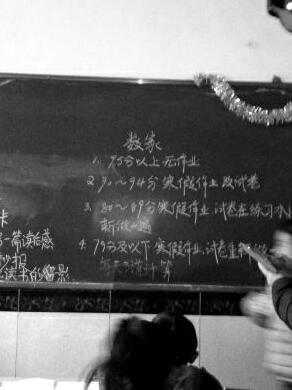 数家
1. 95分以上无作业
2. 90～94分寒假作业 改试卷
3. 80～89分寒假作业 试卷在练习本
新做一遍
4. 79分及以下寒假作业.试卷重新做
每天 计算
卡
一篇读后感
抄报
读书的留影